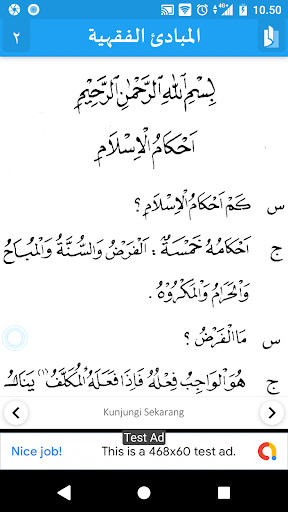 10.50
المبادئ الفقهية
٢
بِسْمِ اللهِ الرَّحْمٰنِ الرَّحِيْمِ
اَحْكَامُ الْاِسْلَامِ
س كَمْ اَحْكَامُ الْاِسْلَامِ ؟
ج اَحْكَامُهُ خَمْسَةٌ : اَلْفَرْضُ وَالسُّنَّةُ وَالْمُبَاحُ
وَالْحَرَامُ وَالْمَكْرُوْهُ .
س مَا الْفَرْضُ ؟
ج هُوَ الْوَاجِبُ فِعْلُهُ فَاِذَا فَعَلَهُ الْمُكَلَّفُ (١) يَنَالُ
Kunjungi Sekarang
Test Ad
Nice job! This is a 468x60 test ad.